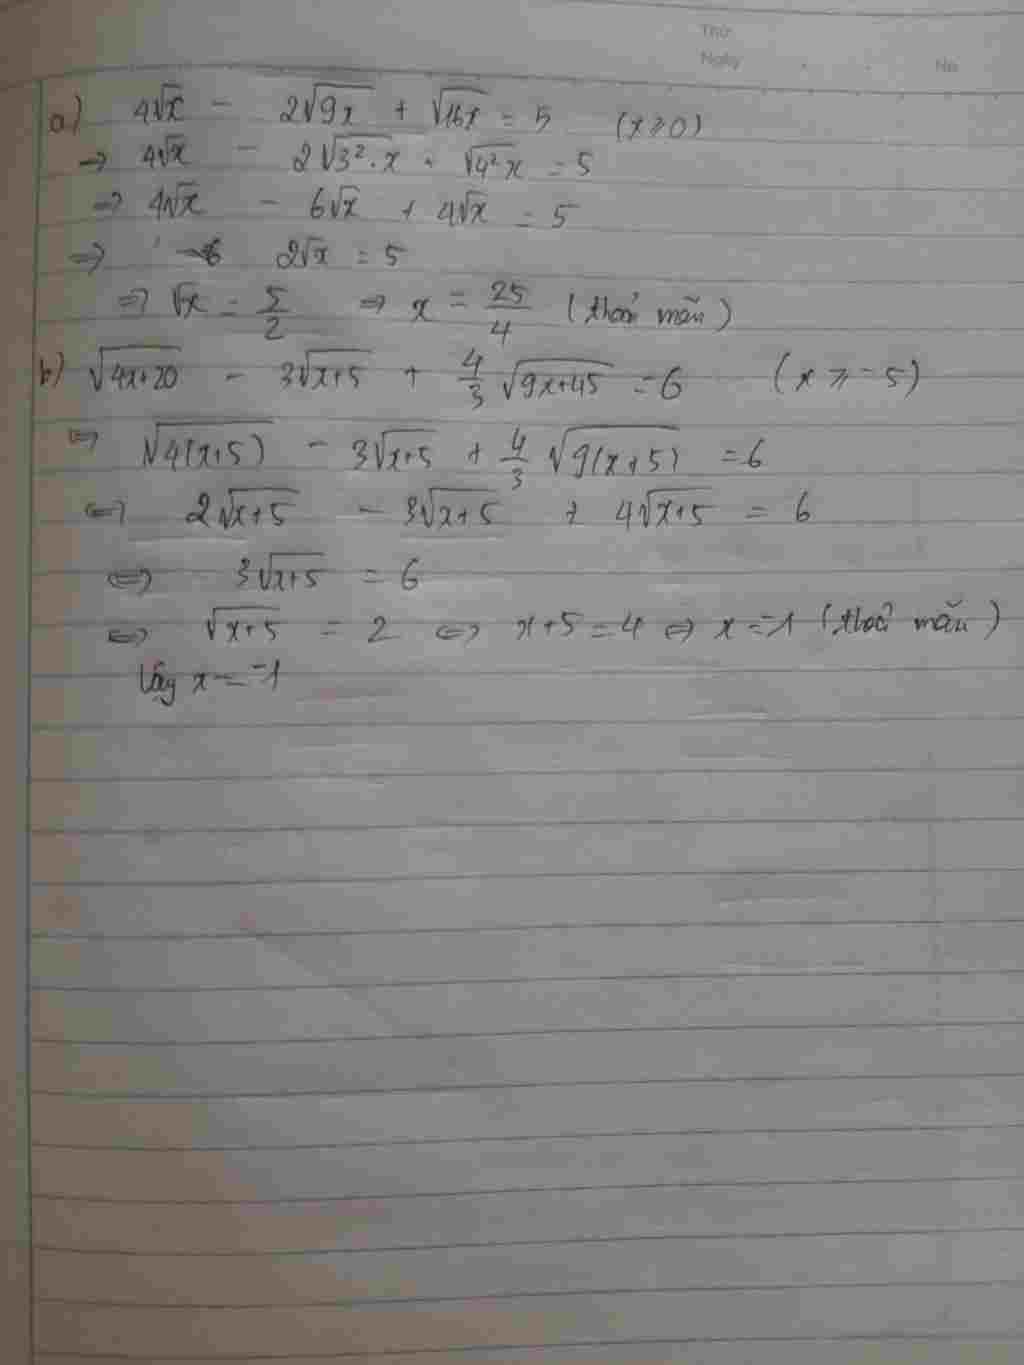 Thứ
Ngày . . No
a) 4√x - 2√9x + √16x = 5 (x ≥ 0)
=> 4√x - 2√3².x + √4²x = 5
=> 4√x - 6√x + 4√x = 5
=> 2√x = 5
=> √x = 5/2 => x = 25/4 (thoả mãn)
b) √4x+20 - 3√x+5 + 4/3 √9x+45 = 6 (x ≥ -5)
<=> √4(x+5) - 3√x+5 + 4/3 √9(x+5) = 6
<=> 2√x+5 - 3√x+5 + 4√x+5 = 6
<=> 3√x+5 = 6
<=> √x+5 = 2 <=> x+5 = 4 <=> x = -1 (thoả mãn)
Vậy x = -1